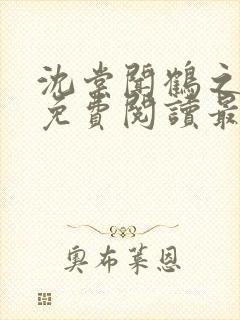 沈棠聞鶴之
免費閱讀最
奧布萊恩